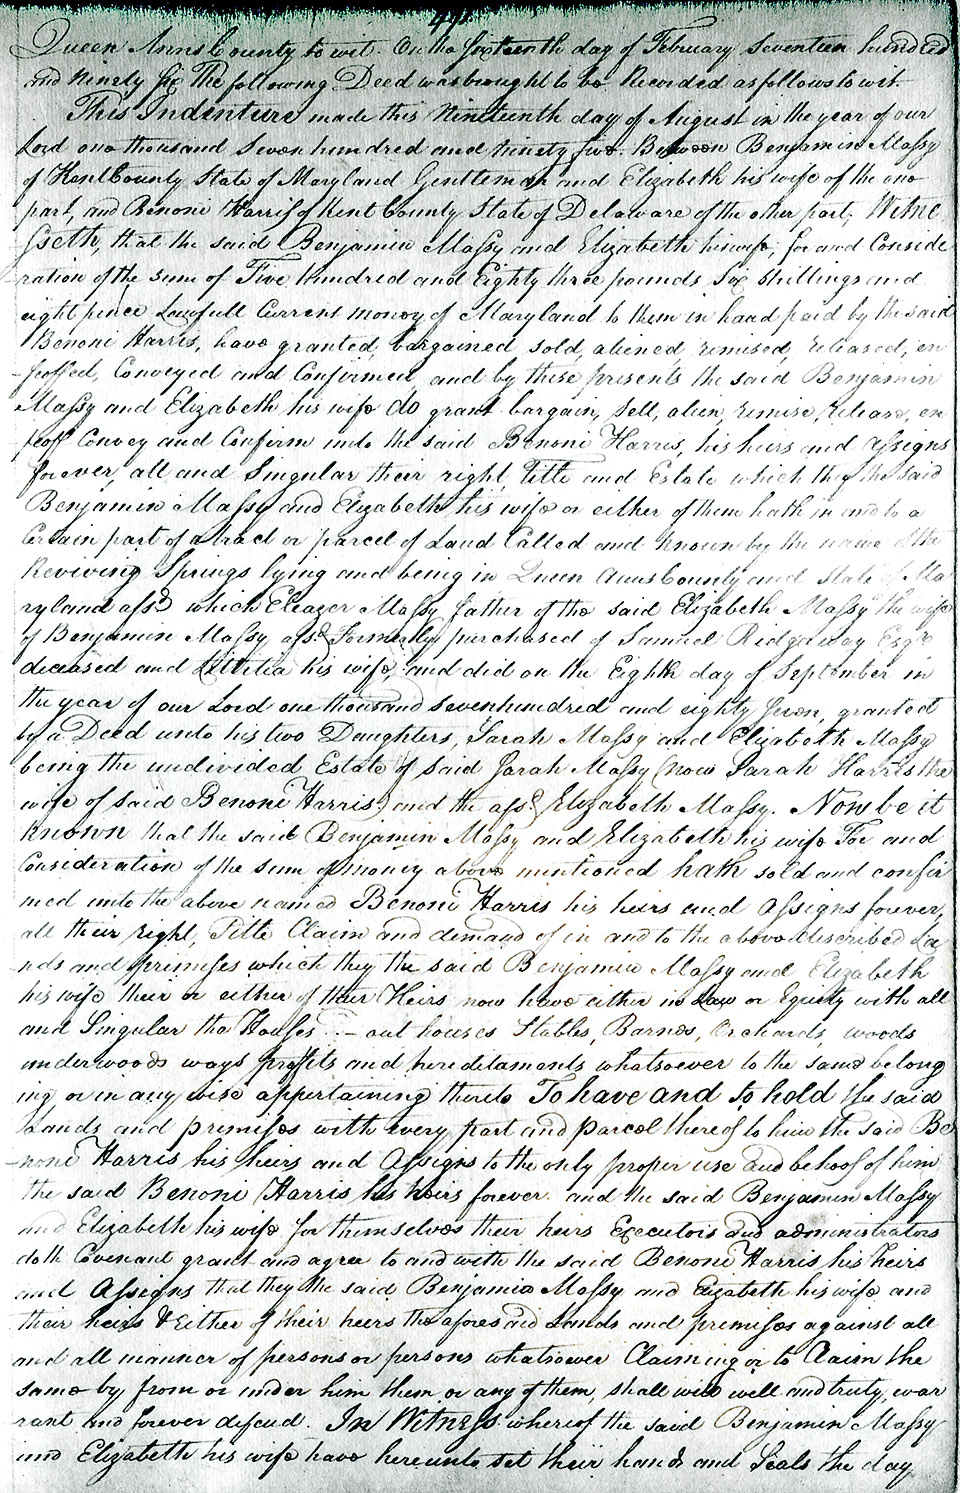 Queen Anns County to wit. On the Sixteenth day of February Seventeen hundred
and Ninety Six The following Deed was brought to be Recorded as follows to wit.
This Indenture made this Nineteenth day of August in the year of our
Lord one thousand Seven hundred and ninety five. Between Benjamin Massy
of Kent County State of Maryland Gentleman and Elizabeth his wife of the one
part, and Benoni Harris of Kent County State of Delaware of the other part, Witne
sseth, that the said Benjamin Massy and Elizabeth his wife, for and Conside
ration of the sum of Five hundred and Eighty three pounds Six Shillings and
eight pence Lawfull Current money of Maryland to them in hand paid by the said
Benoni Harris, have granted, bargained, sold, aliened, remised, released, en
-feoffed, Conveyed and Confirmed, and by these presents the said Benjamin
Massy and Elizabeth his wife do grant bargain, Sell, alien, remise, release, en
feoff Convey and Confirm unto the said Benoni Harris, his heirs and Assigns
forever, all and Singular their right, Title and Estate which they the said
Benjamin Massy and Elizabeth his wife or either of them hath in and to a
Certain part of a tract or parcel of Land Called and known by the name of the
Reviving Springs lying and being in Queen Anns County and State of Ma
ryland afsd. which Eleazer Massy father of the said Elizabeth Massy the wife
of Benjamin Massy afsd. Formerly purchased of Samuel Ridgeway Esqr.
deceased and Littitia his wife, and did on the Eighth day of September in
the year of our Lord one thousand seven hundred and eighty seven, granted
by a Deed unto his two Daughters, Sarah Massy and Elizabeth Massy
being the undivided Estate of said Sarah Massy (now Sarah Harris the
wife of said Benoni Harris) and the afsd. Elizabeth Massy. Now be it
known that the said Benjamin Massy and Elizabeth his wife For and
Consideration of the sum of money above mentioned hath sold and confir
med unto the above named Benoni Harris his heirs and Assigns forever,
all their right, Title Claim and demand of in and to the above described La
nds and premises which they the said Benjamin Massy and Elizabeth
his wife their or either of their Heirs now have either in Law or Equity with all
and Singular the Houses out houses Stables, Barnes, Orchards, woods
underwoods ways proffits and hereditaments whatsoever to the same belong
ing or in any wise appertaining thereto To have and to hold the said
Lands and premises with every part and parcel thereof to him the said Be
-noni Harris his heirs and Assigns to the only proper use and behoof of him
the said Benoni Harris his heirs forever. and the said Benjamin Massy
and Elizabeth his wife for themselves their heirs Executors and administrators
doth Covenant grant and agree to and with the said Benoni Harris, his heirs
and Assigns that they the said Benjamin Massy and Elizabeth his wife and
their heirs & Either of their heirs the aforesaid Lands and premises against all
and all manner of persons or persons whatsoever Claiming or to Claim the
same by from or under him them or any of them, shall will well and truly, war
rant and forever defend. In Witness whereof the said Benjamin Massy
and Elizabeth his wife have hereunto set their hands and Seals the day